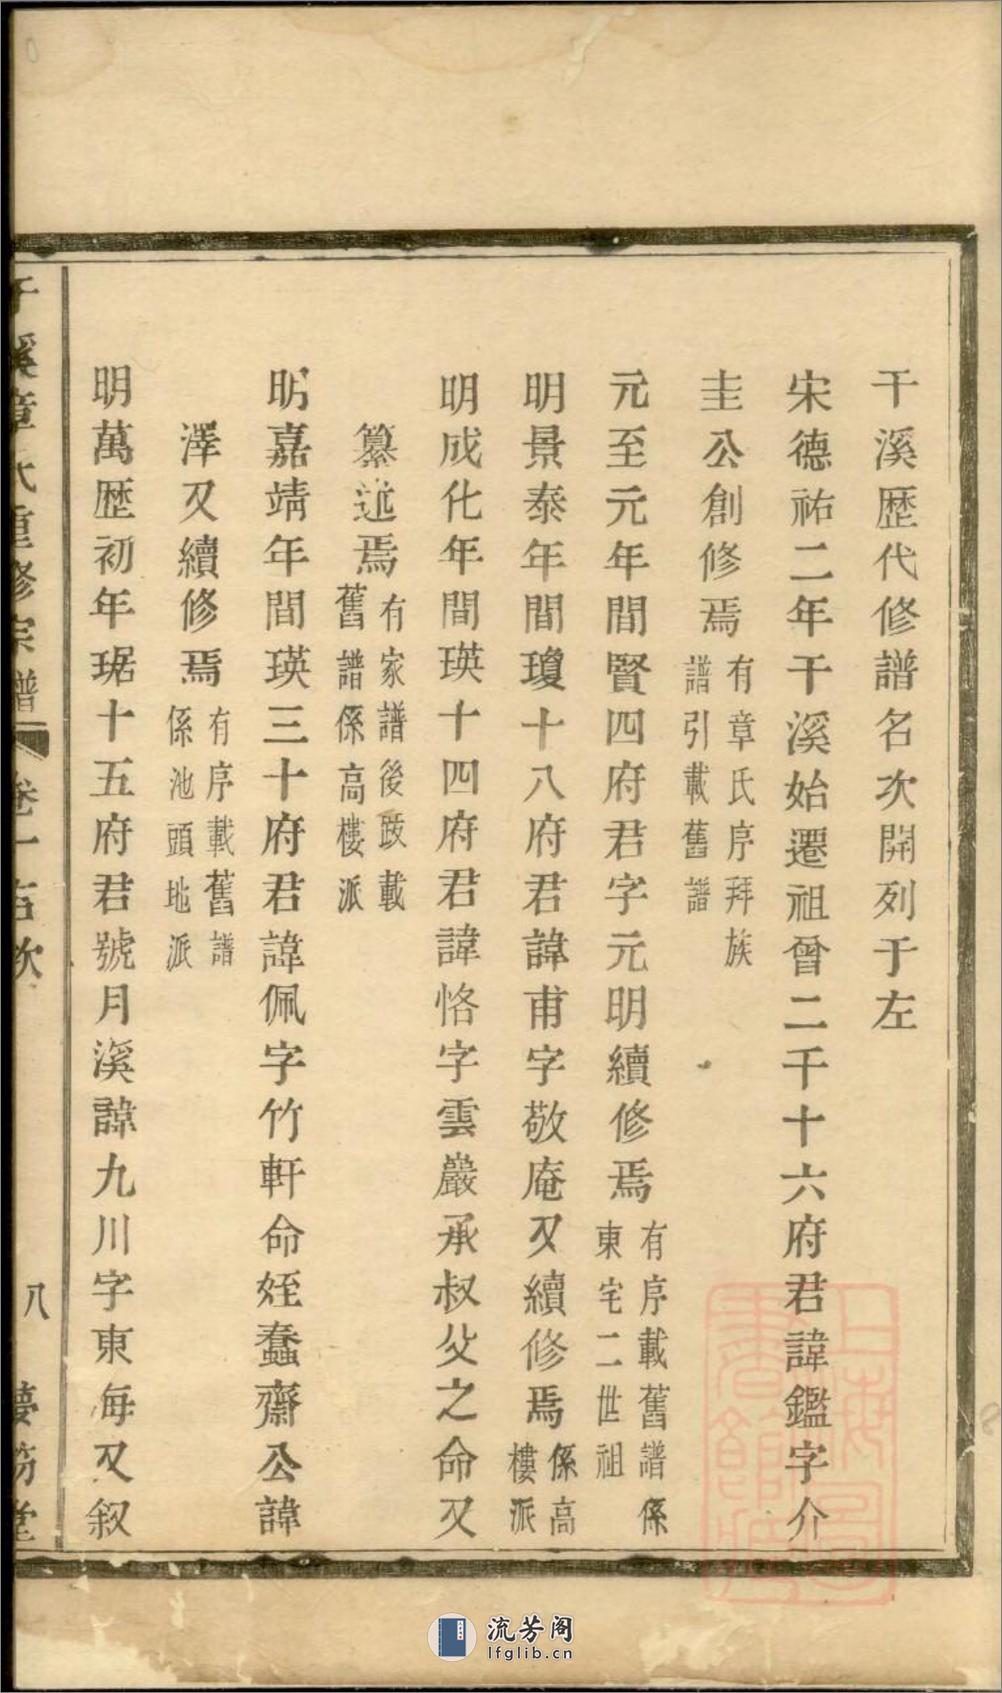 干溪歷代修譜名次開列于左
宋德祐二年干溪始遷祖曾二千十六府君諱鑑字介
圭公創修焉有章氏序拜族
譜引載舊譜
元至元年間賢四府君字元明續修焉有序載舊譜係
東宅二世祖
明景泰年間瓊十八府君諱甫字敬庵又續修焉係高
樓派
明成化年間瑛十四府君諱恪字雲巖承叔父之命又
纂述焉有家譜後跋載
舊譜係高樓派
明嘉靖年間瑛三十府君諱佩字竹軒命姪蠢齋公諱
澤又續修焉有序載舊譜
係池頭地派
明萬歷初年琚十五府君號月溪諱九川字東每又叙
干溪章氏重修宗譜 卷一 八
上海圖書館藏
流芳阁
lfglib.cn